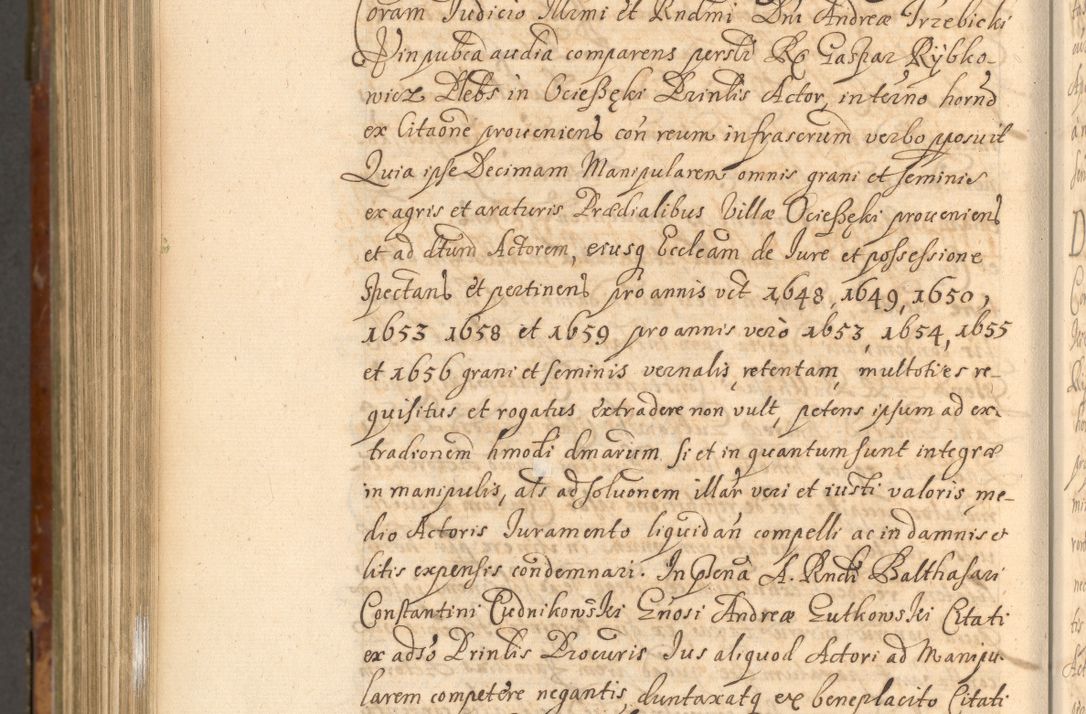 Coram Iudicio Illrmi et Rndmi Dni Andreæ Trzebicki
in pubca audia comparens persdi R. Gaspar Rybko-
wicz Plebs in Ociessęki Prinlis Actor, in termo hornd
ex Citaone proueniens con reum infrascrum verbo pposuit
Quia ipse Decimam Manipularem omnis grani et seminis
ex agris et araturis Prædialibus Villæ Ociessęki proueniens
et ad dtum Actorem, eiusq Eccleam de Iure et possessione
spectans et pertinens pro annis vct 1648, 1649, 1650,
1653 1658 et 1659 pro annis vero 1653, 1654, 1655
et 1656 grani et seminis vernalis, retentam, multoties re-
quisitus et rogatus extradere non vult, petens ipsum ad ex-
tradionem hmodi dmarum si et in quantum sunt integræ
in manipulis, als ad soluonem illar veri et iusti valoris, me-
dio Actoris Iuramento liquidan compelli ac in damnis et
litis expensis condemnari. In plena A. Rndi Balthasari
Constantini Cudnikowski Gnosi Andreæ Gutkowski Citati
ex adso Prinlis Procuris Ius aliquod Actori ad Manipu-
larem competere negantis, duntaxatq ex beneplacito Citati